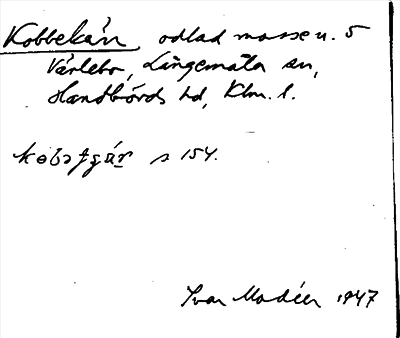 Kobbekán odlad mosse u. 5
Värlebo, Långemåla sn,
Handbörds hd, Klm. l.
s 154.
Ivar Modéer 1947